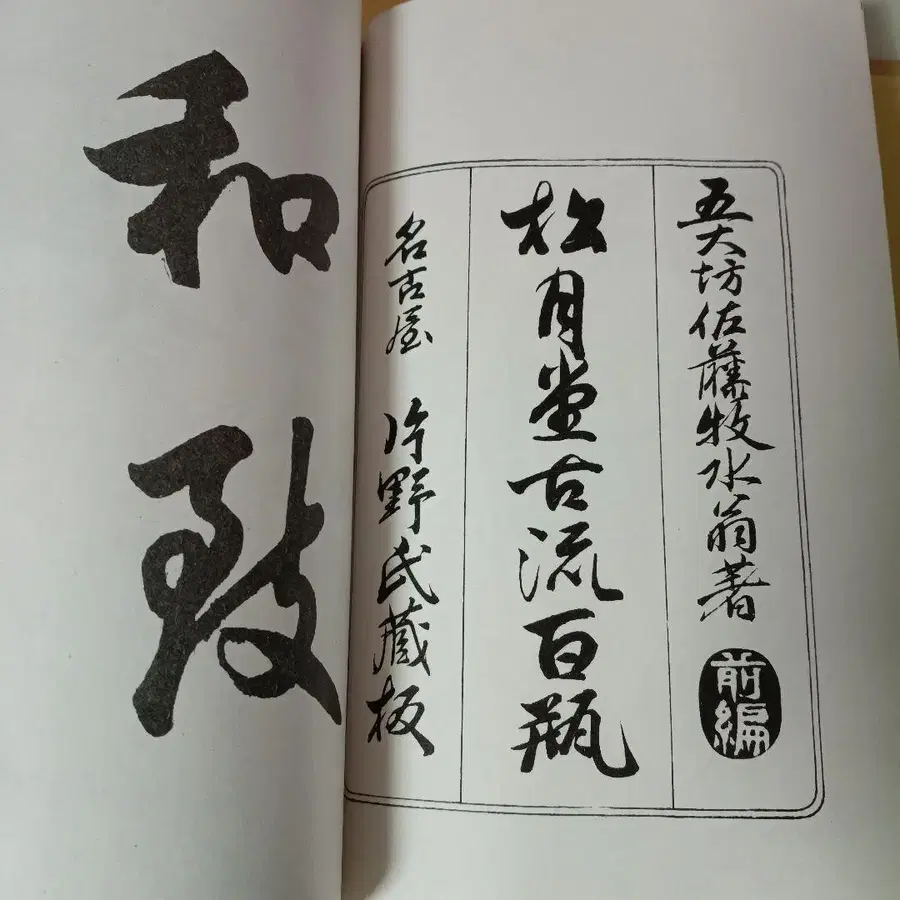 五大坊佐藤牧水翁著
前編
松月堂古流百瓶
名古屋 片野氏蔵板
和致